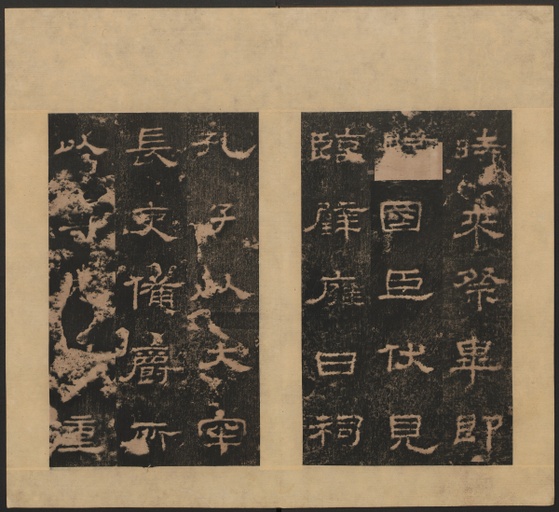 時來祭畢即
國臣伏見
臨璧雍日祠
孔子以大牢
長吏備爵所
重